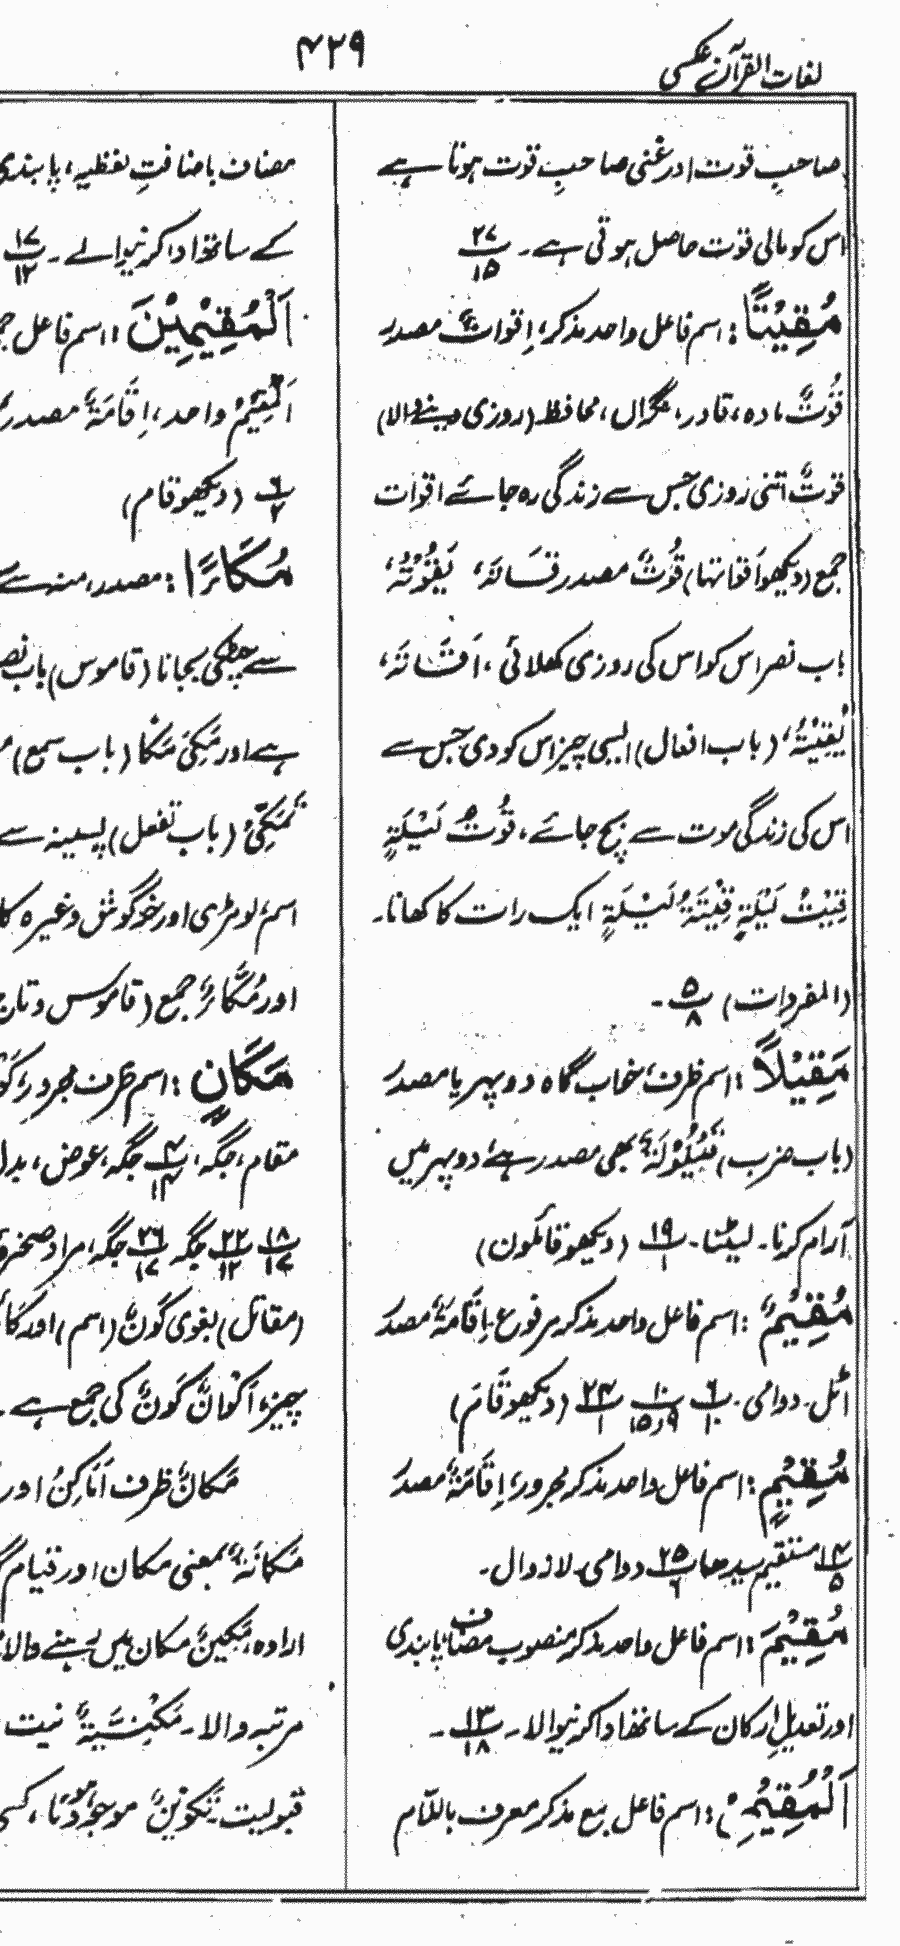 لغات القرآن عکسی
۴۲۹
صاحبِ قوت اور غنی صاحبِ قوت ہوتا ہے
اس کو مالی قوت حاصل ہوتی ہے۔ ۲۷/۱۵
مُقِيْتًا: اسم فاعل واحد مذکر، اِقوات مصدر
قُوْتٌ مادہ، قادر، نگراں، محافظ (روزی دینے والا)
قوتٌ اتنی روزی جس سے زندگی رہ جائے اقوات
جمع (دیکھو اقواتہا) قُوْتٌ مصدر قَاتَهٗ یَقُوْتُهٗ،
باب نصر اس کو اس کی روزی کھلائی، اَقَاتَهٗ،
یُقِیْتُهٗ، (باب افعال) ایسی چیز اس کو دی جس سے
اس کی زندگی موت سے بچ جائے، قُوْتُ لَیْلَةٍ
قِیْتُ لَیْلَةٍ قِیْتَةُ لَیْلَةٍ ایک رات کا کھانا۔
(المفردات) ۵/۸ ۔
مَقِيْلًا: اسم ظرف، خواب گاہ دوپہر یا مصدر
(باب ضرب) قَیْلُوْلَةٌ بھی مصدر ہے، دوپہر میں
آرام کرنا۔ لیٹنا۔ ۱۹/۱ (دیکھو قائلون)
مُقِيْمٌ: اسم فاعل واحد مذکر مرفوع۔ اِقَامَةٌ مصدر
اٹل۔ دوامی۔ ۶/۱۰ ۱۰/۹و۱۵ ۲۴/۱ (دیکھو قَامَ)
مُقِيْمٍ: اسم فاعل واحد مذکر مجرور، اِقَامَةٌ مصدر
۱۴/۵ مستقیم سیدھا ۲۵/۶ دوامی۔ لازوال۔
مُقِيْمَ: اسم فاعل واحد مذکر منصوب مضاف پابندی
اور تعدیلِ ارکان کے ساتھ ادا کرنیوالا۔ ۱۳/۱۸ ۔
اَلْمُقِيْمِ: اسم فاعل جمع مذکر معرف باللّام
مضاف باضافتِ لفظیہ، پابندی
کے ساتھ ادا کرنیوالے۔ ۱۷/۱۲
اَلْمُقِيْمِيْنَ: اسم فاعل
اَلْمُقِيْمُ واحد، اِقَامَةٌ مصدر
۶/۲ (دیکھو قام)
مُكَاءً: مصدر، منہ سے
سے چٹکی بجانا (قاموس) باب
ہے اور مَکِیَ مَکًا (باب سمع)
تَمَكِّیْ، (باب تفعل) پسینہ سے
اسم، لومڑی اور خرگوش وغیرہ
اور مُكَّاءٌ جمع (قاموس و تاج
مَكَانٍ: اسم ظرف مجرور،
مقام، جگہ، ۴/۱۴ جگہ، عوض،
۱۸/۱۷ ۲۲/۱۲ جگہ ۲۶/۱۷ جگہ، مراد
(مقاتل) بغوی کَوْنٌ (اسم) اور
چیز، اَکْوَانٌ کَوْنٌ کی جمع ہے۔
مَکَانٌ ظرف اَمَاکِنُ اور
مَکَانَةٌ، بمعنی مکان اور قیام
ارادہ، مَکِیْنٌ مکان میں رہنے والا،
مرتبہ والا۔ مَکِیْنَةٌ نیت
قبولیت۔ تَکْوِیْنٌ، موجود